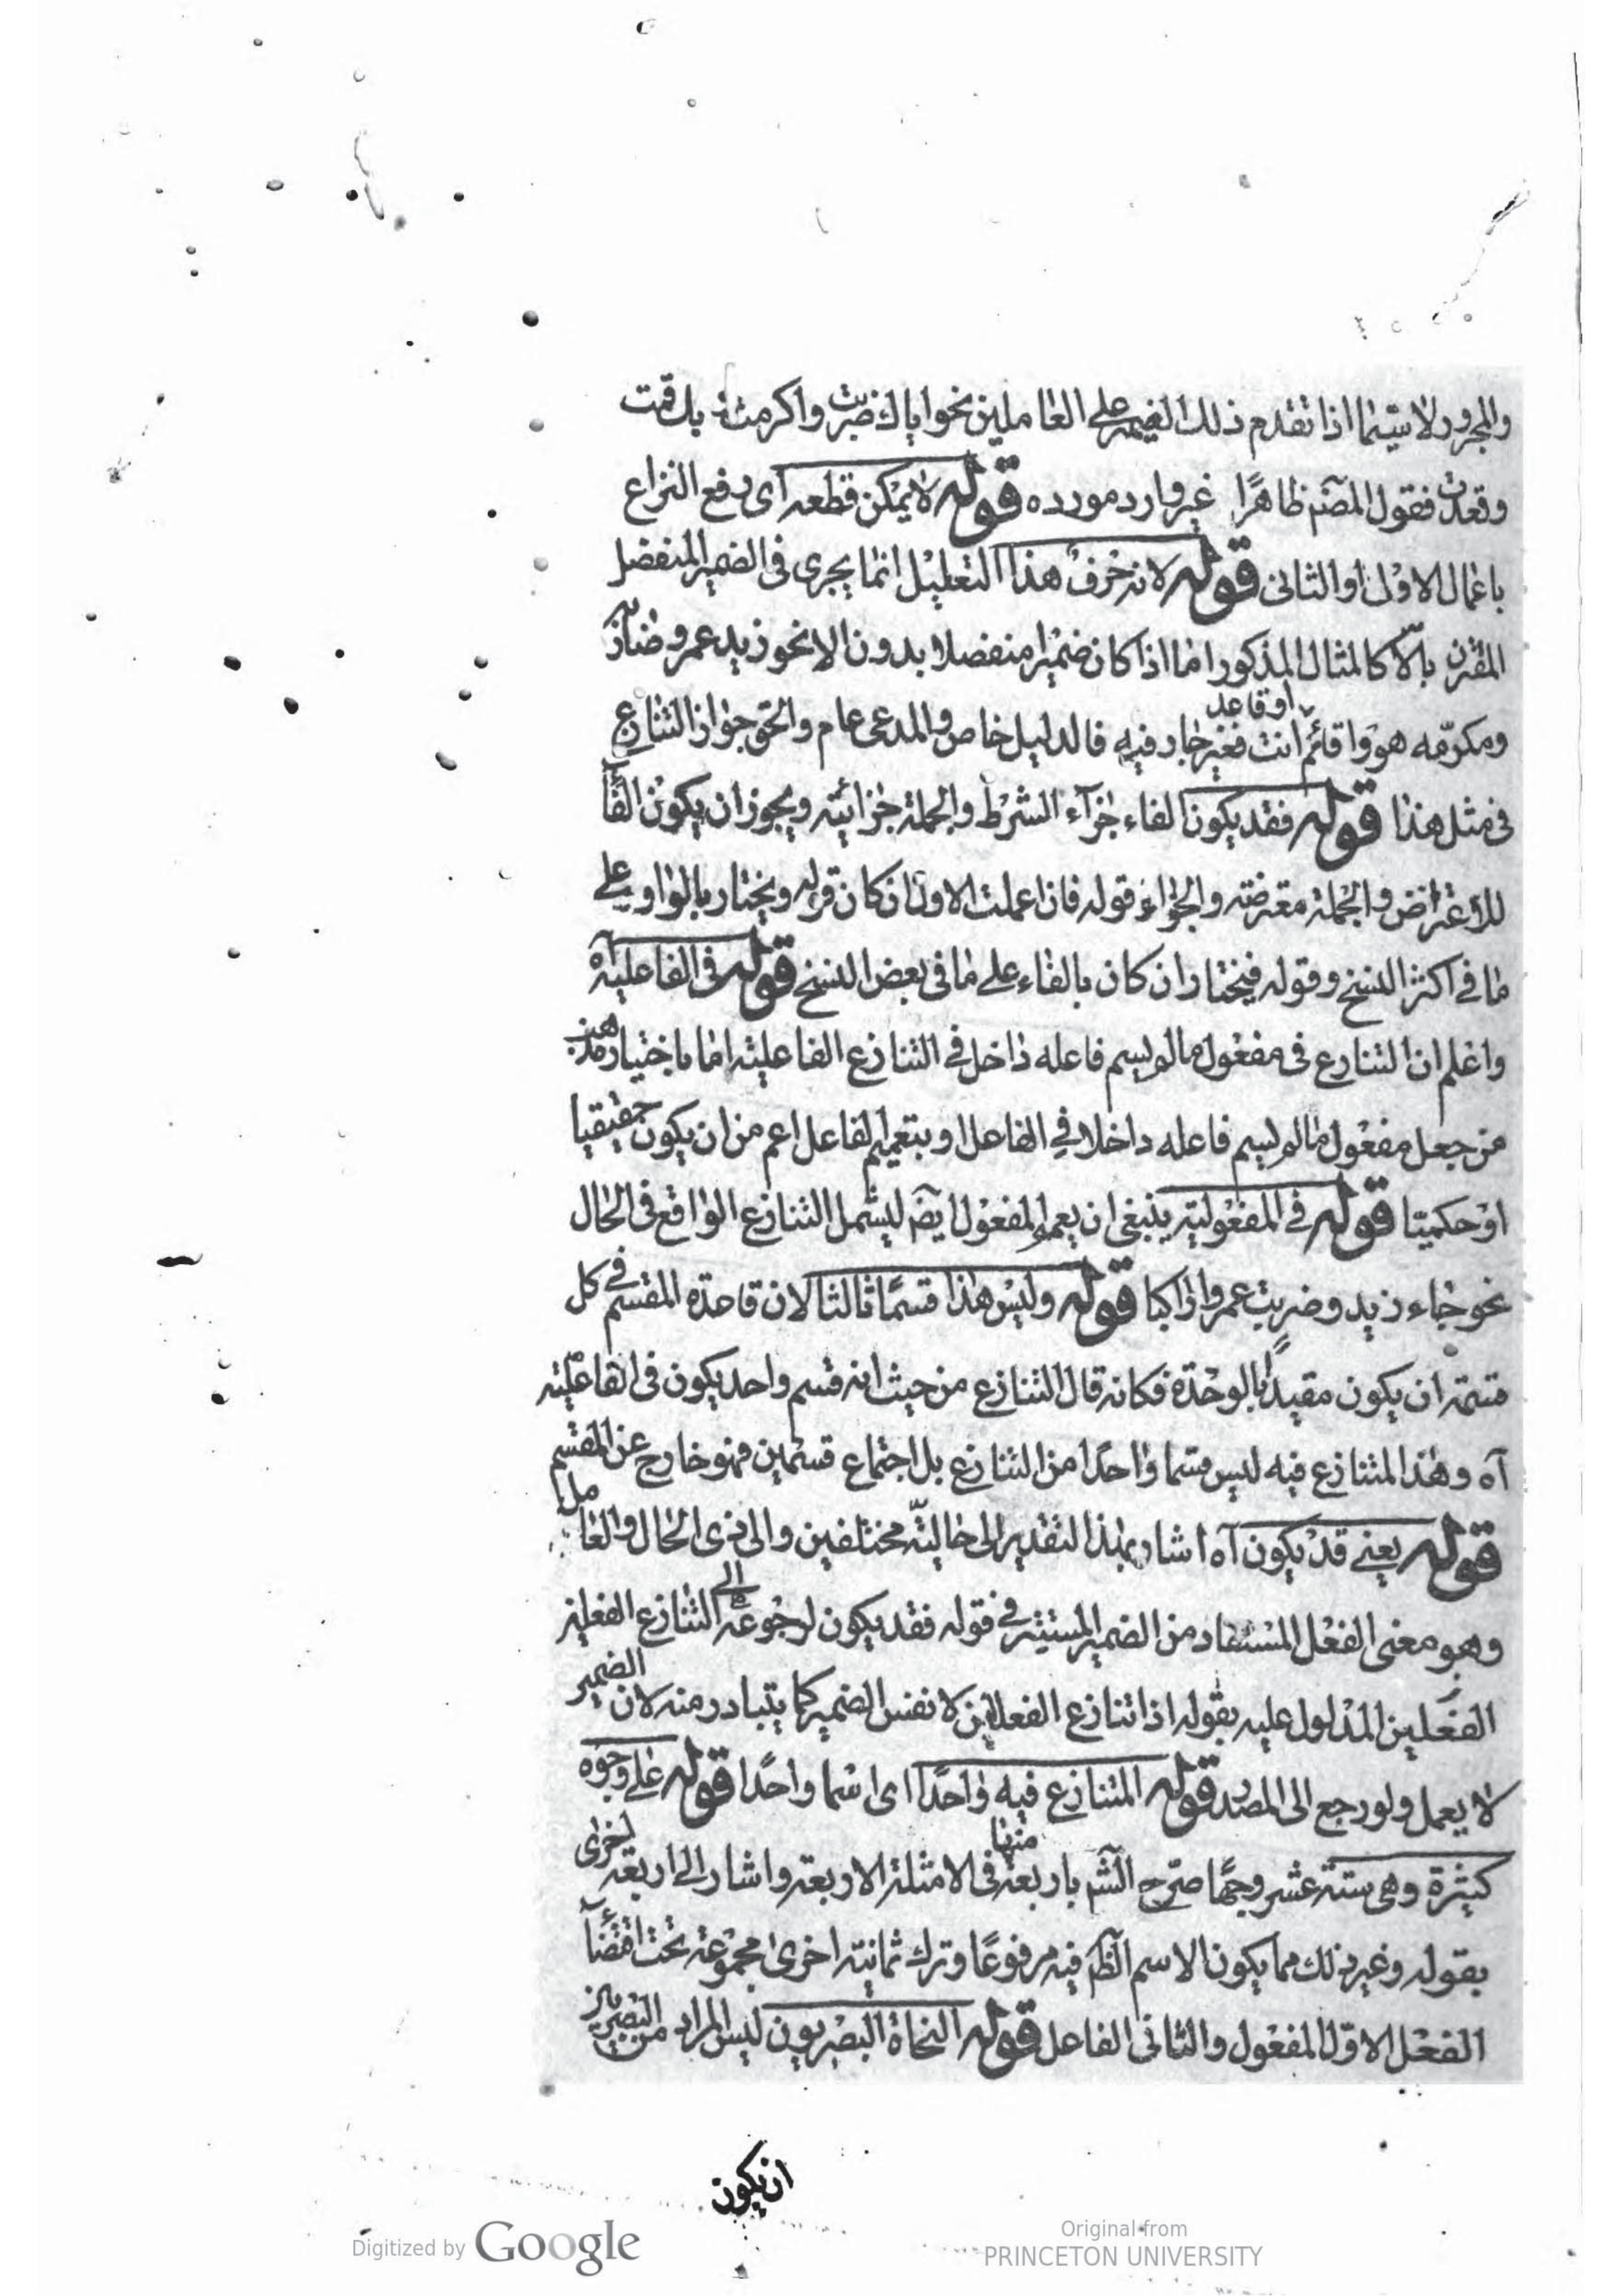 والمجرور لا سيّما اذا تقدم ذلك الضمير على العاملين نحو اياك ضربت واكرمت وبك قمت
وقعدت فقول المصنّم ظاهرًا غير وارد مورده قوله لا يمكن قطعه اى رفع النزاع
باعمال الاول او الثانى قوله لانه حرف هذا التعليل انما يجرى فى الضمير المنفصل
المقترن بالّا كالمثال المذكور اما اذا كان ضميرا منفصلا بدون الا نحو زيد عمرو ضاربه
ومكرمه هو واقائم او قاعد انت فغير جار فيه فالدليل خاص والمدعى عام والحق جواز التنازع
فى مثل هذا قوله فقد يكون الفاء جزآء الشرط والجملة جزائية ويجوز ان يكون الفآء
للاعتراض والجملة معترضة والجزاء قوله فان اعملت الاول ان كان قوله ويختار بالواو على
ما فى اكثر النسخ وقوله فيختار ان كان بالفاء على ما فى بعض النسخ قوله فى الفاعلية آه
واعلم ان التنازع فى مفعول ما لم يسم فاعله داخل فى التنازع الفاعلية اما باختيار مذهب
من جعل مفعول ما لم يسم فاعله داخلا فى الفاعل او بتعميم الفاعل اعم من ان يكون حقيقيا
او حكميّا قوله فى المفعولية ينبغى ان يعم المفعول ايضا ليشمل التنازع الواقع فى الحال
نحو جاء زيد وضربت عمروا راكبا قوله وليس هذا قسمًا ثالثا لان قاعدة المقسم فى كل
قسمة ان يكون مقيدًا بالوحدة فكانه قال التنازع من حيث انه قسم واحد يكون فى الفاعلية
آه وهذا المتنازع فيه ليس قسما واحدًا من التنازع بل اجتماع قسمين فهو خارج عن المقسم
قوله يعنى قد يكون آه اشار بهذا التقدير الى حاليّة مختلفين والى ذى الحال والعامل
وهو معنى الفعل المستفاد من الضمير المستتر فى قوله فقد يكون لرجوعه الى التنازع الفعلين
الفعلين المدلول عليه بقوله اذا تنازع الفعلان لا نفس الضمير كما يتبادر منه لان الضمير
لا يعمل ولو رجع الى المصدر قوله المتنازع فيه واحدًا اى اسما واحدًا قوله على وجوه
كثيرة وهى ستة عشر وجهًا صرّح الشّم باربعة منها فى الامثلة الاربعة واشار الى اربعة اخرى
بقوله وغير ذلك مما يكون الاسم الظّم فيه مرفوعًا وترك ثمانية اخرى مجموعة تحت اقتضآء
الفعل الاول المفعول والثانى الفاعل قوله النحاة البصريون ليس المراد من البصريين
ان يكون
Digitized by Google
Original from
PRINCETON UNIVERSITY